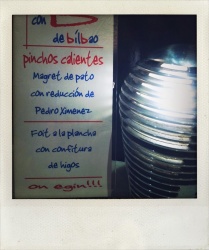 con B
de bilbao
pinchos calientes
Magret de pato
con reducción de
Pedro Ximenez
Foit a la plancha
con confitura
de higos
on egin!!!